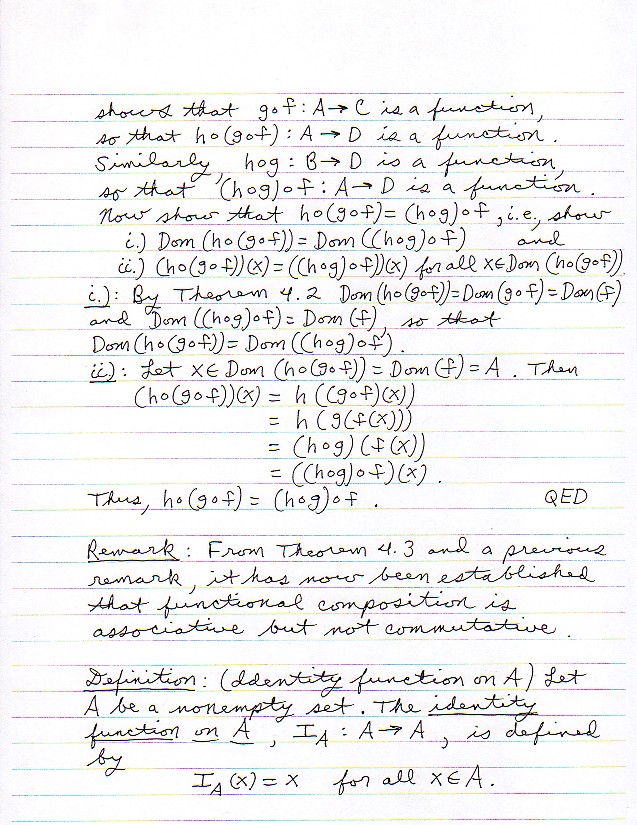 shows that g∘f : A → C is a function,
so that h∘(g∘f) : A → D is a function.
Similarly, h∘g : B → D is a function,
so that (h∘g)∘f : A → D is a function.
Now show that h∘(g∘f) = (h∘g)∘f, i.e., show
i.) Dom (h∘(g∘f)) = Dom ((h∘g)∘f) and
ii.) (h∘(g∘f))(x) = ((h∘g)∘f))(x) for all x∈Dom (h∘(g∘f)).
i.): By Theorem 4.2 Dom(h∘(g∘f)) = Dom(g∘f) = Dom(f)
and Dom((h∘g)∘f) = Dom(f), so that
Dom(h∘(g∘f)) = Dom((h∘g)∘f).
ii): Let x∈ Dom (h∘(g∘f)) = Dom(f) = A. Then
(h∘(g∘f))(x) = h((g∘f)(x))
= h(g(f(x)))
= (h∘g)(f(x))
= ((h∘g)∘f)(x).
Thus, h∘(g∘f) = (h∘g)∘f. QED
Remark: From Theorem 4.3 and a previous
remark, it has now been established
that functional composition is
associative but not commutative.
Definition: (Identity function on A) Let
A be a nonempty set. The identity
function on A, I_A : A → A, is defined
by
I_A(x) = x for all x∈A.